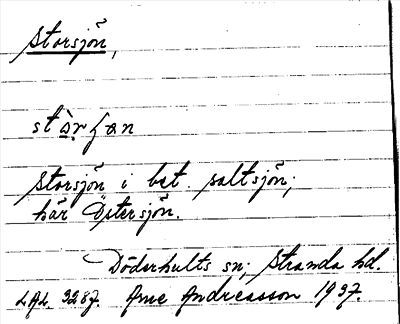 Storsjön,
stòrʃøn
Storsjön i bet. saltsjön;
här Östersjön.
Döderhults sn; Stranda hd.
LAL. 3287. Arne Andreasson 1937.